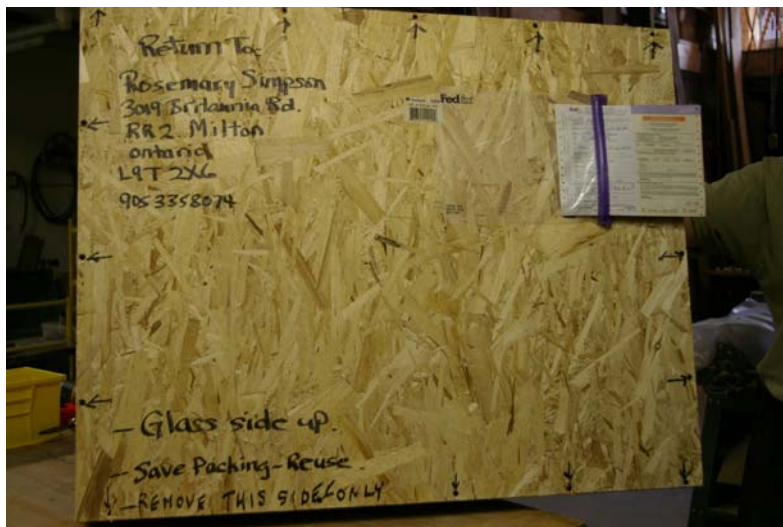 Return To:
Rosemary Simpson
3019 Britannia Rd.
RR2 Milton
ontario
L9T 2X6
905 3358074
FedEx
- Glass side up.
- Save Packing - Reuse
- REMOVE THIS SIDE ONLY